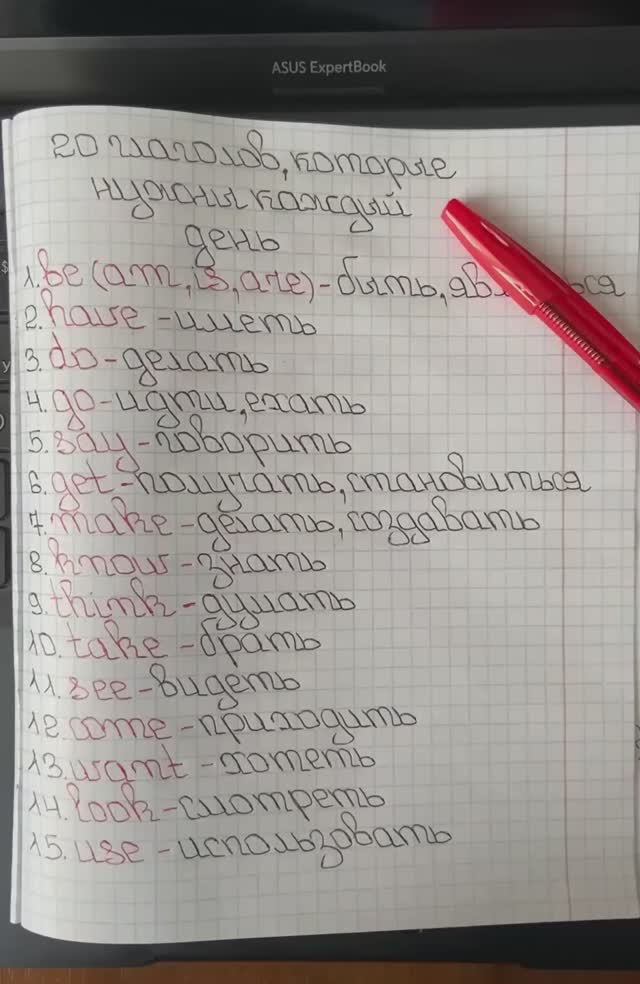 ASUS ExpertBook
20 глаголов, которые
нужны каждый
день
1. be (am, is, are) - быть, яв ься
2. have - иметь
3. do - делать
4. go - идти, ехать
5. say - говорить
6. get - получать, становиться
7. make - делать, создавать
8. know - знать
9. think - думать
10. take - брать
11. see - видеть
12. come - приходить
13. want - хотеть
14. look - смотреть
15. use - использовать